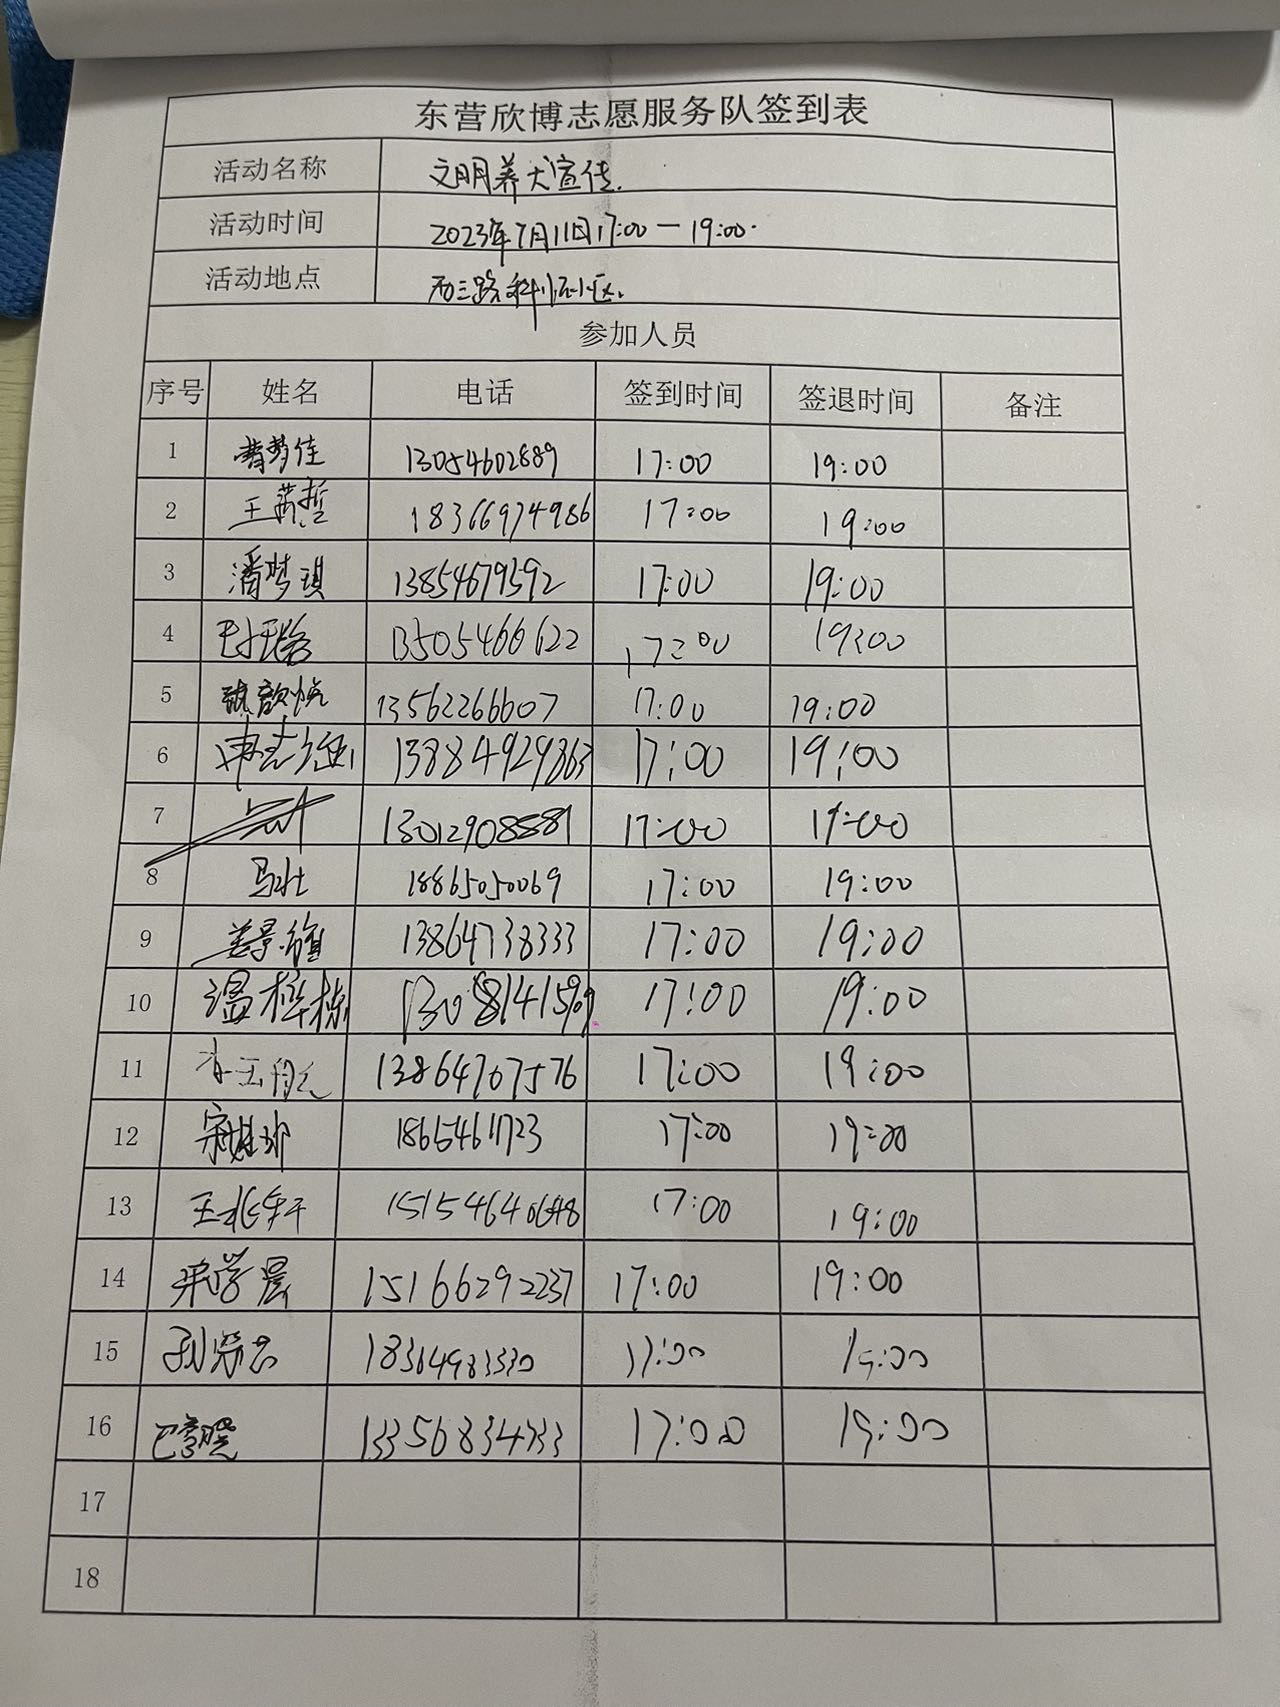 东营欣博志愿服务队签到表
活动名称 文明养犬宣传.
活动时间 2023年7月11日17:00—19:00.
活动地点 西三路科恒小区.
参加人员
序号 姓名 电话 签到时间 签退时间 备注
1 曹梦佳 13054602889 17:00 19:00
2 王茜哲 18366974986 17:00 19:00
3 潘梦琪 13854679592 17:00 19:00
4 13505466622 17:00 19:00
5 13562266607 17:00 19:00
6 13884929863 17:00 19:00
7 13012908881 17:00 19:00
8 马壮 18865050069 17:00 19:00
9 13864738333 17:00 19:00
10 温桦栋 17:00 19:00
11 13864707576 17:00 19:00
12 18654611723 17:00 19:00
13 15154640648 17:00 19:00
14 宋学晨 15166292237 17:00 19:00
15 18364983330 17:00 19:00
16 13356834733 17:00 19:00
17
18